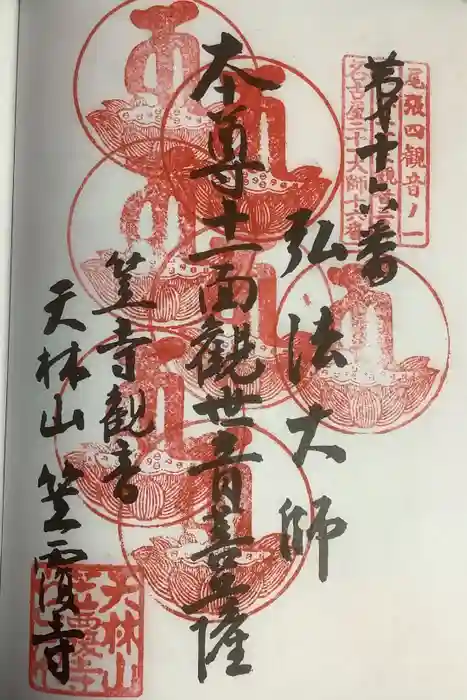 第十六番
弘法大師
本尊十一面観世音菩薩
笠寺観音
天林山 笠覆寺
尾張四観音ノ一
名古屋二十一大師十六番
天林山
笠覆寺